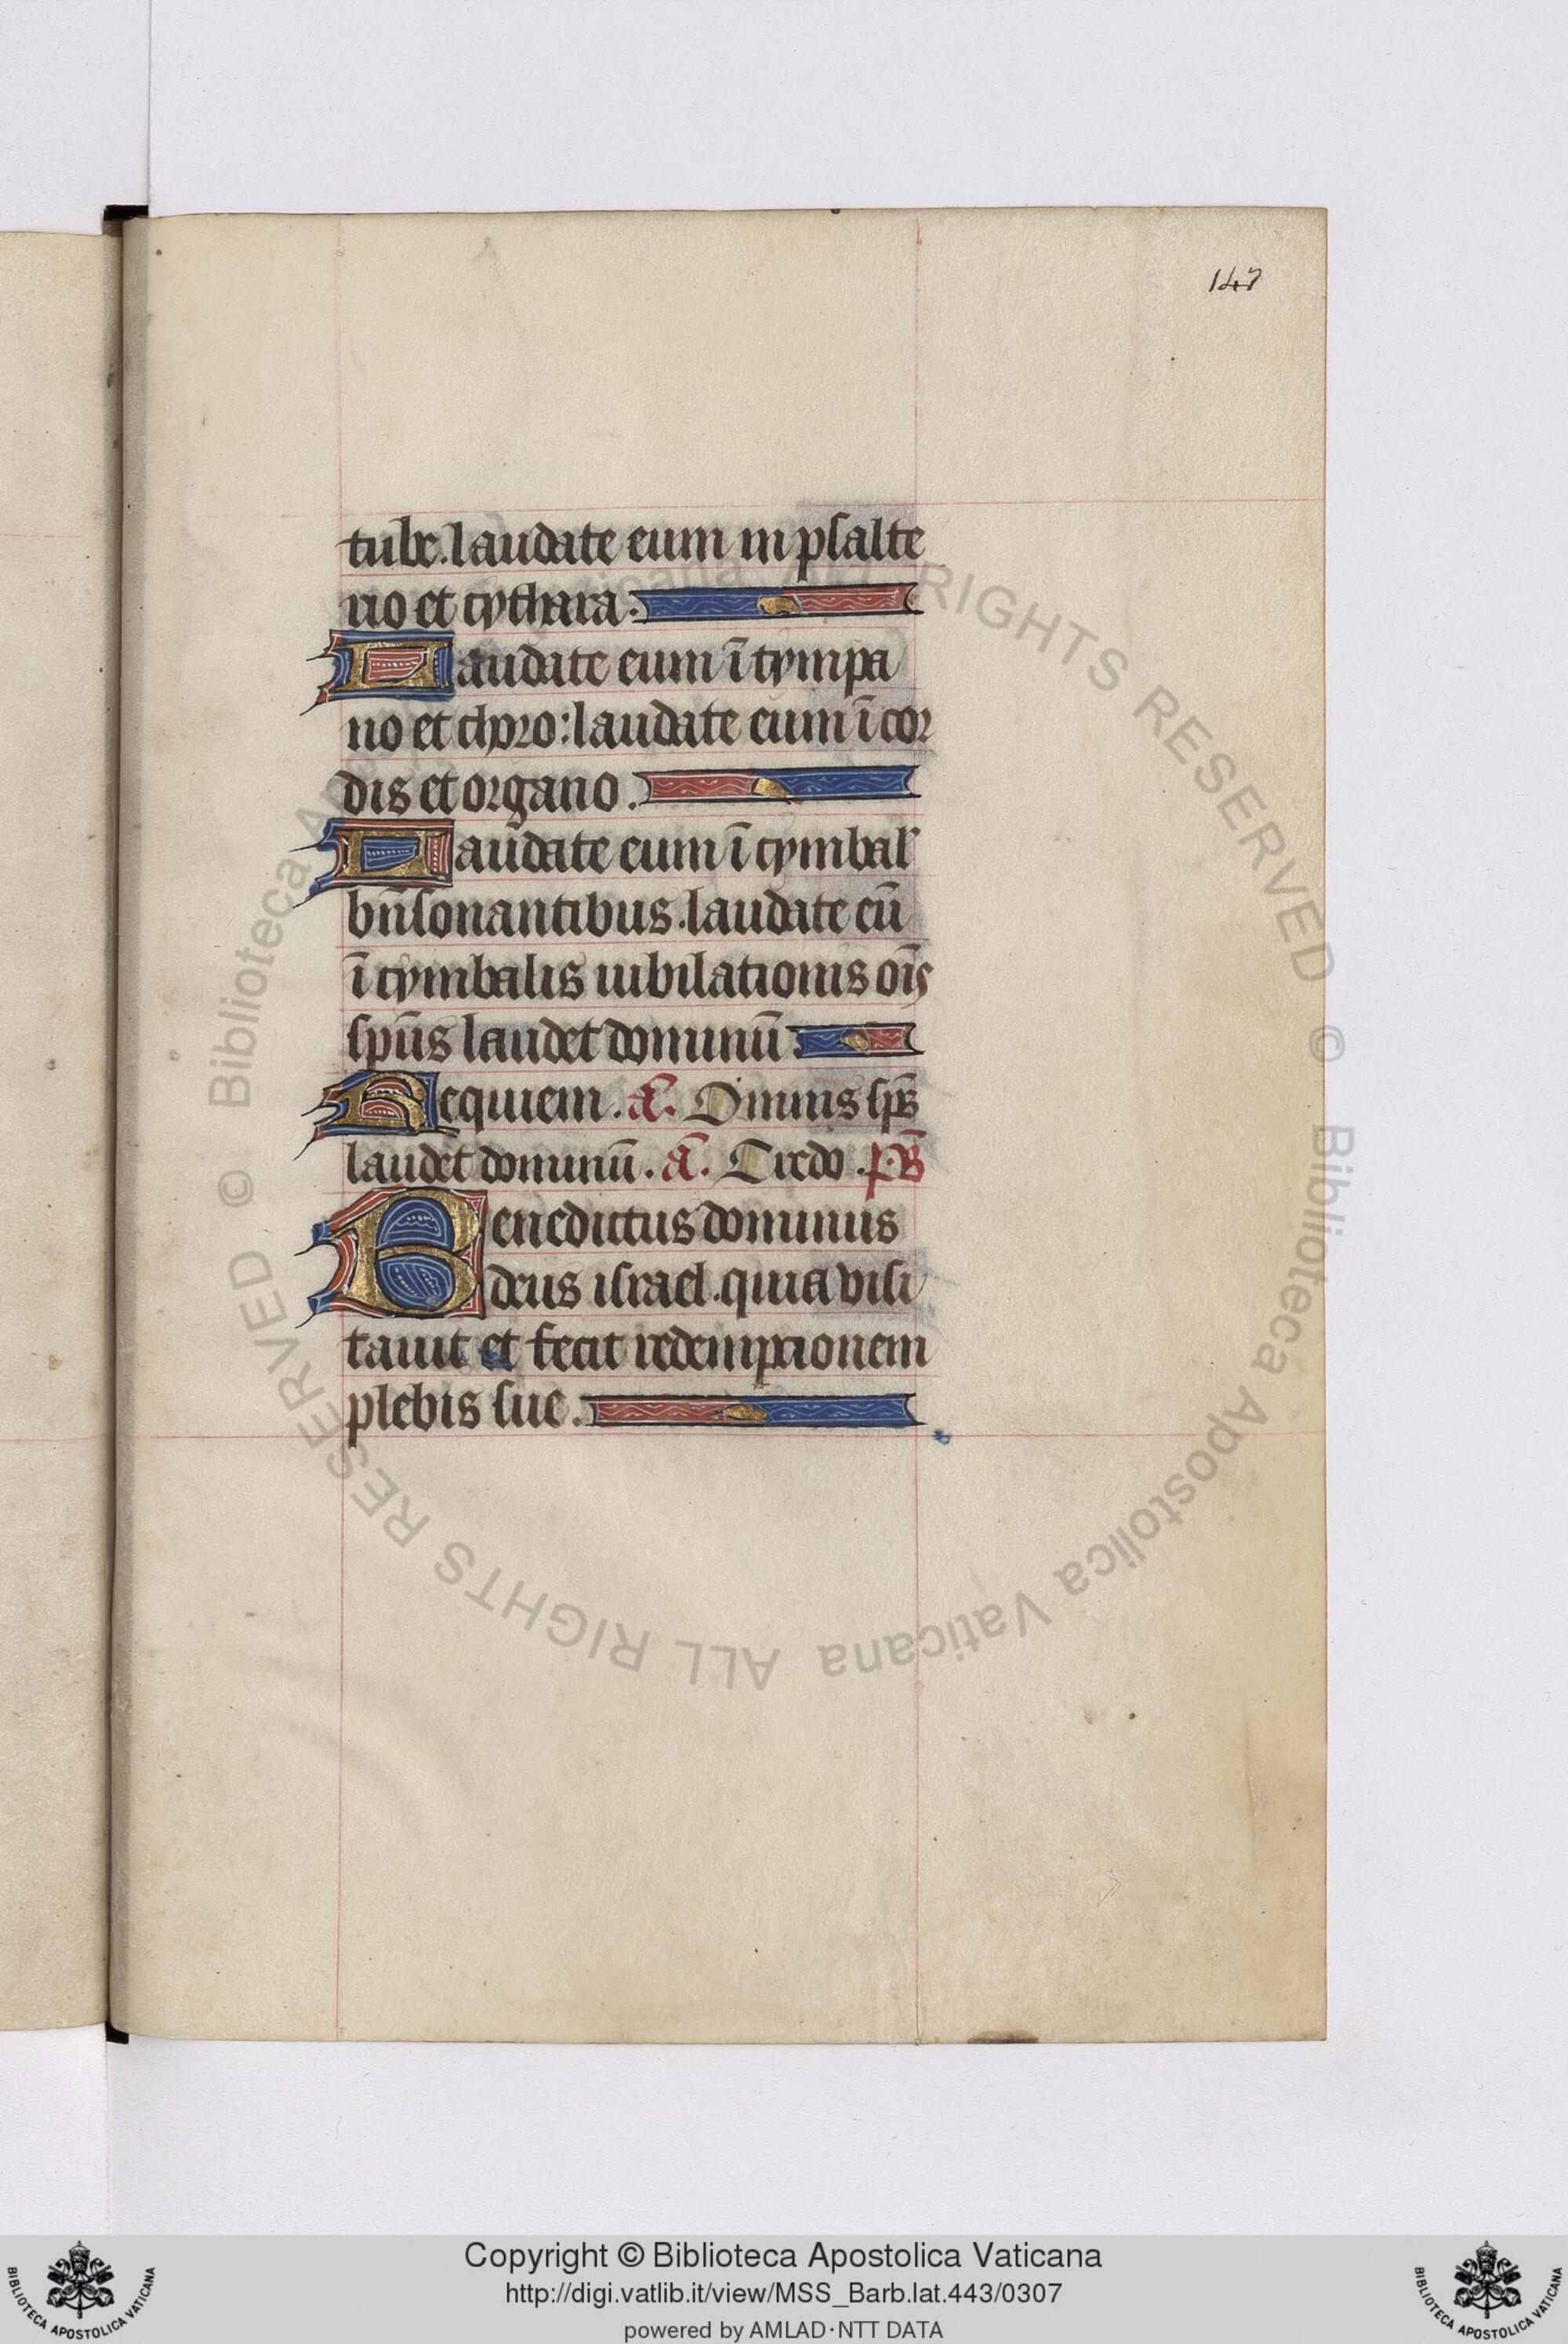 147
tube. laudate eum in psalte
rio et cythara.
Laudate eum ī tympa
no et choro: laudate eum ī cor
dis et organo.
Laudate eum ī cymbal'
bn̄sonantibus. laudate eū
ī cymbalis iubilationis oīs
spūs laudet dominū.
Requiem. a͞. Omnis sps̄
laudet dominū. a͞. Credo. ps̄
Benedictus dominus
deus israel. quia visi
tauit et fecit redemptionem
plebis sue.
© Biblioteca Apostolica Vaticana ALL RIGHTS RESERVED © Biblioteca Apostolica Vaticana ALL RIGHTS RESERVED
Copyright © Biblioteca Apostolica Vaticana
http://digi.vatlib.it/view/MSS_Barb.lat.443/0307
powered by AMLAD·NTT DATA
BIBLIOTECA APOSTOLICA VATICANA
BIBLIOTECA APOSTOLICA VATICANA